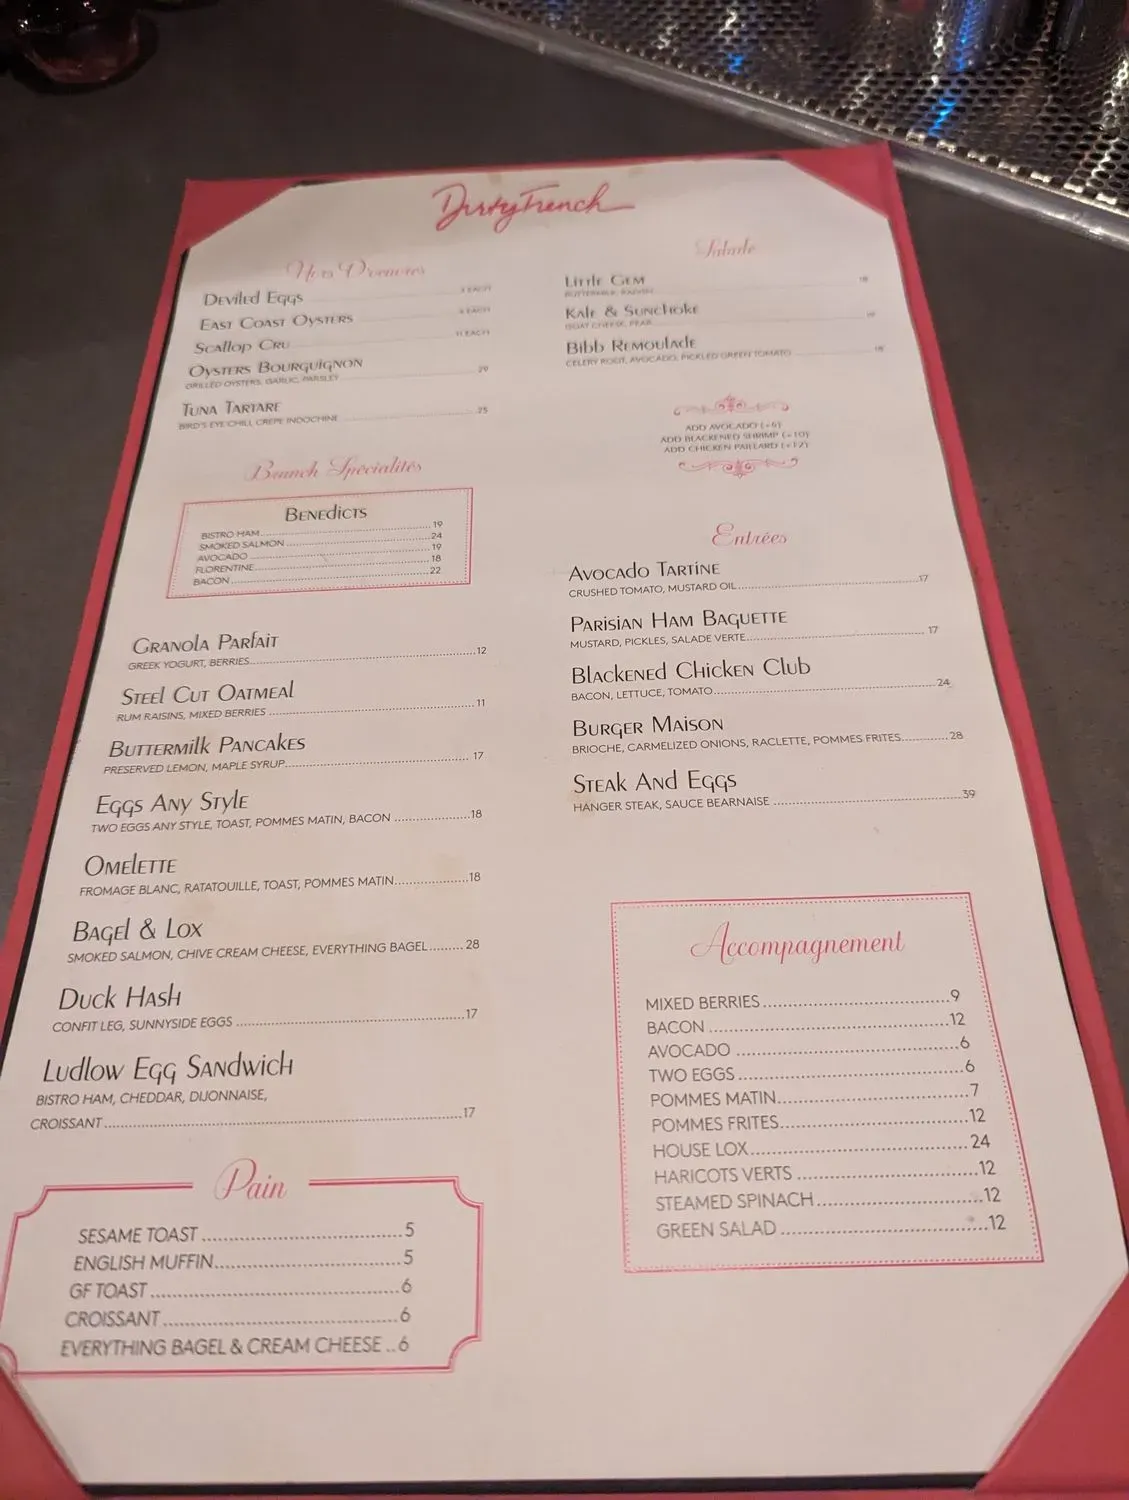 Dirty French
Hors D'oeuvres
Deviled Eggs EACH
East Coast Oysters 4 EACH
Scallop Cru 11 EACH
Oysters Bourguignon
GRILLED OYSTERS, GARLIC, PARSLEY 29
Tuna Tartare
BIRD'S EYE CHILI, CREPE INDOCHINE 25
Brunch Specialités
Benedicts
BISTRO HAM 19
SMOKED SALMON 24
AVOCADO 19
FLORENTINE 18
BACON 22
Granola Parfait
GREEK YOGURT, BERRIES 12
Steel Cut Oatmeal
RUM RAISINS, MIXED BERRIES 11
Buttermilk Pancakes
PRESERVED LEMON, MAPLE SYRUP 17
Eggs Any Style
TWO EGGS ANY STYLE, TOAST, POMMES MATIN, BACON 18
Omelette
FROMAGE BLANC, RATATOUILLE, TOAST, POMMES MATIN 18
Bagel & Lox
SMOKED SALMON, CHIVE CREAM CHEESE, EVERYTHING BAGEL 28
Duck Hash
CONFIT LEG, SUNNYSIDE EGGS 17
Ludlow Egg Sandwich
BISTRO HAM, CHEDDAR, DIJONNAISE,
CROISSANT 17
Pain
SESAME TOAST 5
ENGLISH MUFFIN 5
GF TOAST 6
CROISSANT 6
EVERYTHING BAGEL & CREAM CHEESE 6
Salade
Little Gem
BUTTERMILK, RADISH 18
Kale & Sunchoke
GOAT CHEESE, PEAR
Bibb Remoulade
CELERY ROOT, AVOCADO, PICKLED GREEN TOMATO 18
ADD AVOCADO (+6)
ADD BLACKENED SHRIMP (+10)
ADD CHICKEN PAILLARD (+12)
Entrées
Avocado Tartine
CRUSHED TOMATO, MUSTARD OIL 17
Parisian Ham Baguette
MUSTARD, PICKLES, SALADE VERTE 17
Blackened Chicken Club
BACON, LETTUCE, TOMATO 24
Burger Maison
BRIOCHE, CARMELIZED ONIONS, RACLETTE, POMMES FRITES 28
Steak And Eggs
HANGER STEAK, SAUCE BEARNAISE 39
Accompagnement
MIXED BERRIES 9
BACON 12
AVOCADO 6
TWO EGGS 6
POMMES MATIN 7
POMMES FRITES 12
HOUSE LOX 24
HARICOTS VERTS 12
STEAMED SPINACH 12
GREEN SALAD 12